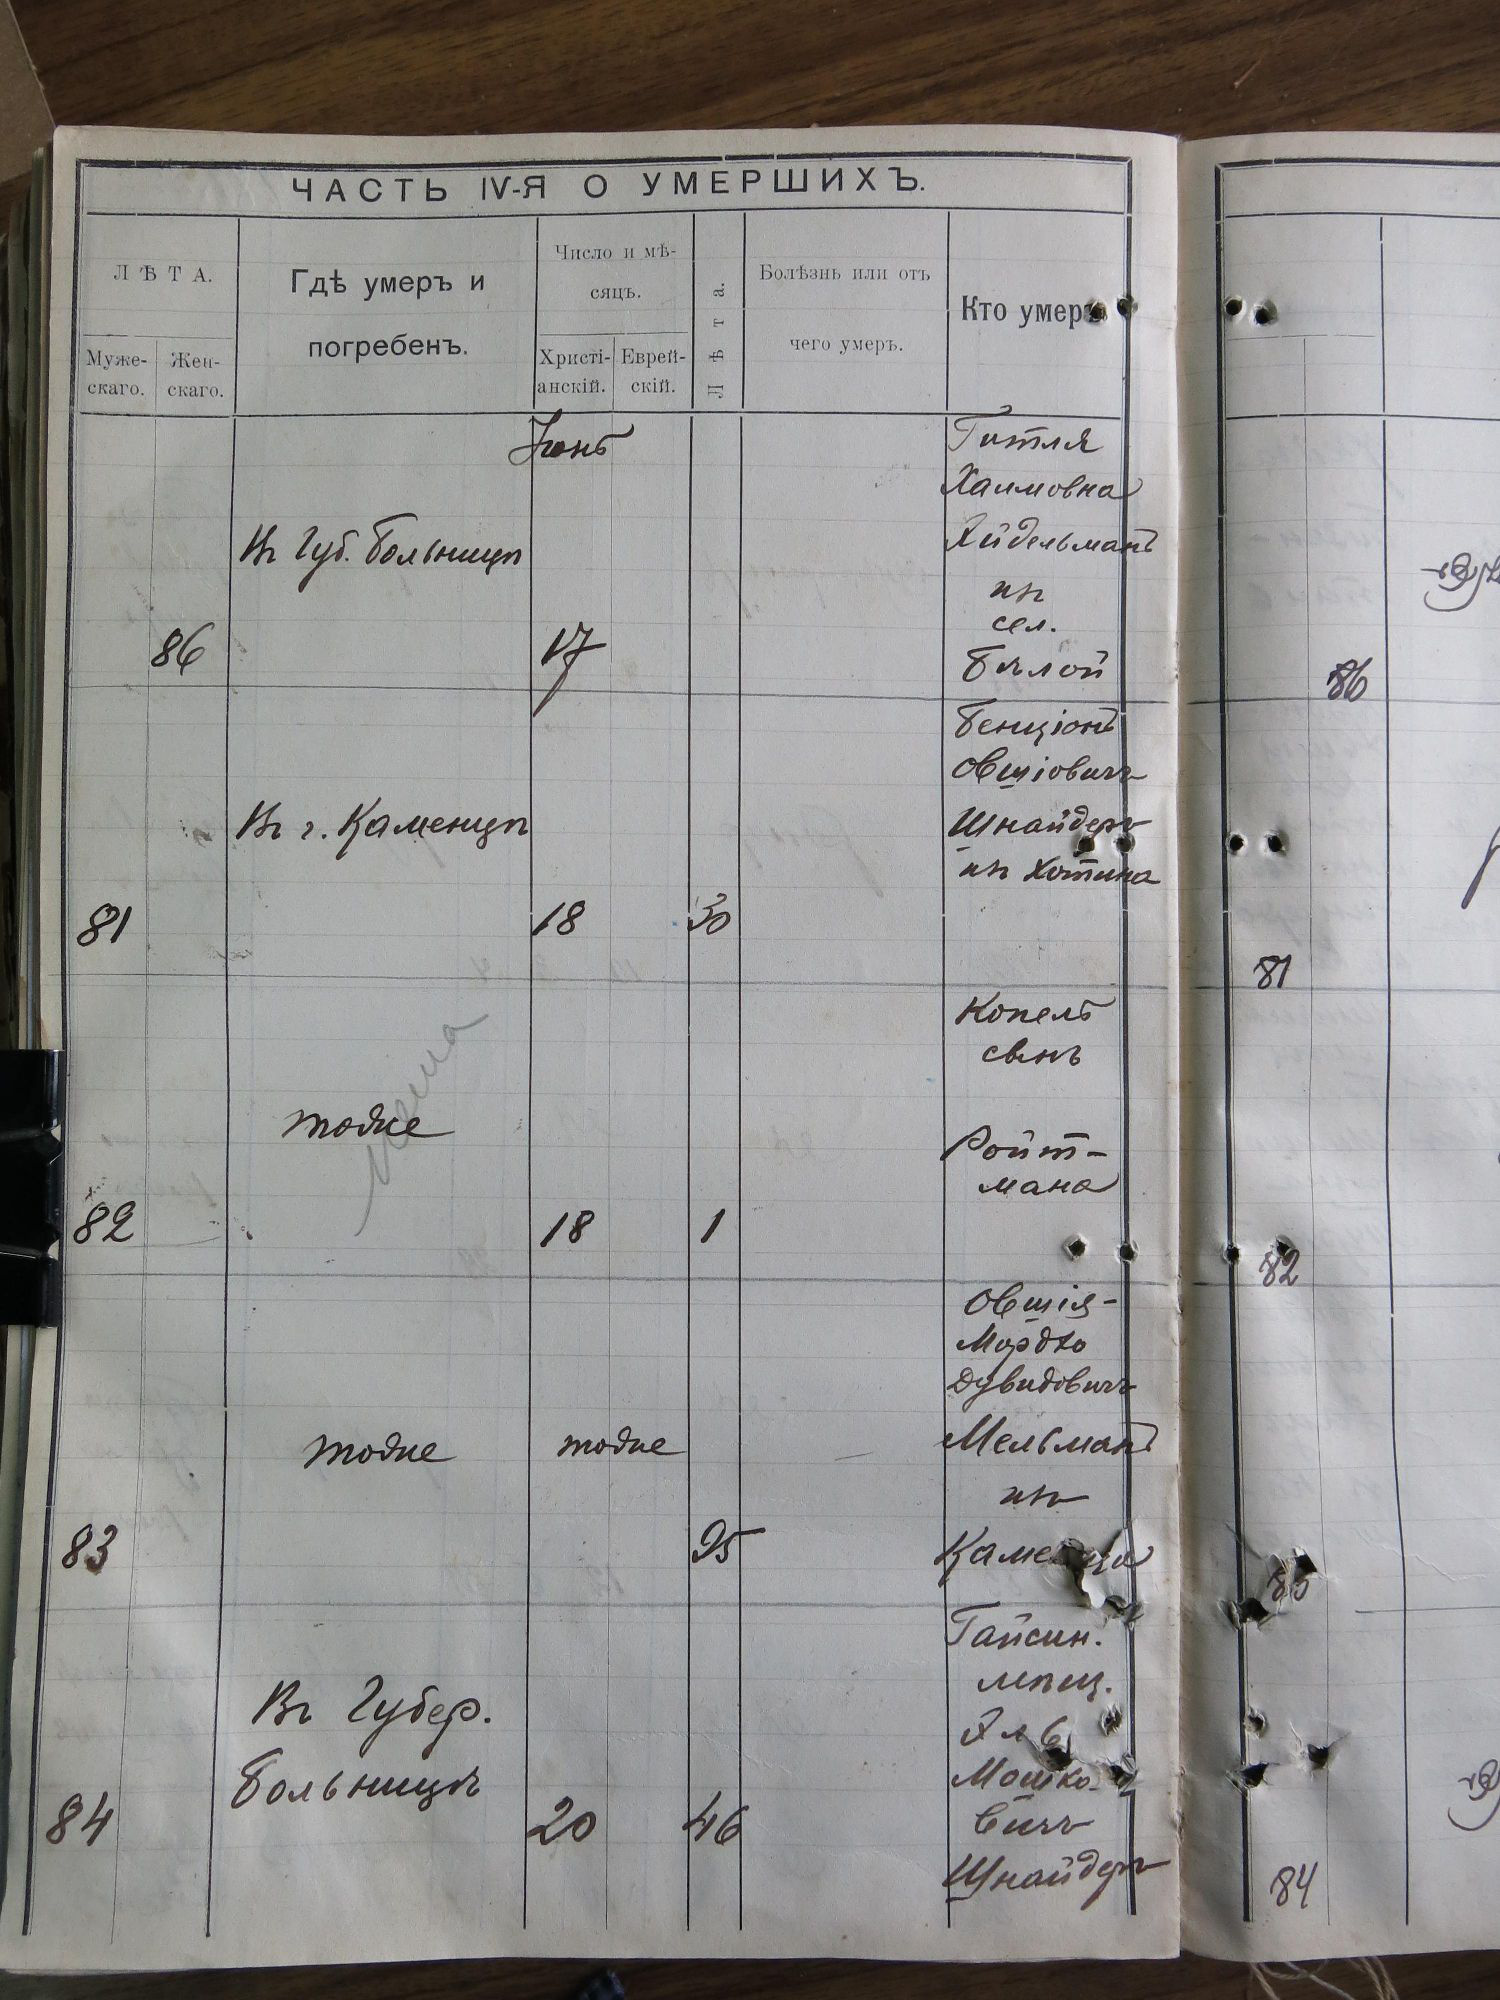 ЧАСТЬ IV-Я О УМЕРШИХЪ.
ЛѢТА.
Муже-
скаго.
Жен-
скаго.
Гдѣ умеръ и
погребенъ.
Число и мѣ-
сяцъ.
Христі-
анскій.
Еврей-
скій.
Лѣта.
Болѣзнь или отъ
чего умеръ.
Кто умеръ
Іюнь
86
Въ Губ. больницѣ
17
Гитля
Хаимовна
Айдельманъ
изъ
сел.
Бялой
86
81
Въ г. Каменцѣ
18
30
Бенціонъ
Овшіовичъ
Шнайдеръ
изъ Хотина
81
82
тоже
18
1
Копель
сынъ
Ройт-
мана
82
83
тоже
тоже
95
Овшія-
Мордко
Дувидовичъ
Мельманъ
изъ
84
Въ Губер.
больницѣ
20
46
Гайсин.
мѣщ.
Мошко-
вичъ
Шнайдеръ
84